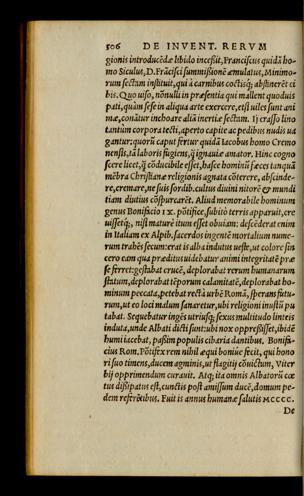 506 DE INVENT. RERVM
gionis introducẽdæ libido incessit, Franciscus quidã ho-
mo Siculus, D. Frãcisci summissionẽ æmulatus, Minimo-
rum sectam instituit, qui à carnibus coctisq; abstinerẽt ci
bis. Quo uiso, nõnulli in præsentia qui mallent quoduis
pati, quàm sese in aliqua arte exercere, etsi uiles sunt ani
mæ, conãtur inchoare aliã inertiæ sectam. Ij crasso lino
tantùm corpora tecti, aperto capite ac pedibus nudis ua
gantur: quorũ caput fertur quidã Iacobus homo Cremo
nensis, tã laboris fugiens, q̃ ignauiæ amator. Hinc cogno
scere licet, q̃ cõducibile esset, hasce hominũ fæces tanquã
mẽbra Christianæ religionis agnata cõterere, abscinde-
re, cremare, ne suis sordib. cultus diuini nitorẽ & mundi
tiam diutius cõspurcarẽt. Aliud memorabile hominum
genus Bonifacio IX. põtifice, subitò terris apparuit, ere
uissetq;, nisi maturè itum esset obuiam: descẽderat enim
in Italiam ex Alpib. sacerdos ingentẽ mortalium nume-
rum trahẽs secum: erat is alba indutus ueste, ut colore sin
cero eam qua præditus uidebatur animi integritatẽ præ
se ferret: gestabat crucẽ, deplorabat rerum humanarum
statum, deplorabat tẽporum calamitatẽ, deplorabat ho-
minum peccata, petebat rectà urbẽ Romã, sperans futu-
rum, ut eo loci malum sanaretur, ubi religioni inustũ pu
tabat. Sequebatur ingẽs utriusq; sexus multitudo linteis
induta, unde Albati dicti sunt: ubi nox oppressisset, ibidẽ
humi iacebat, passim populis cibaria dantibus. Bonifa-
cius Rom. Põtifex rem nihil æqui boniue fecit, qui hono
ri suo timens, ducem agminis, ut flagitij cõuictum, Viter
bij opprimendum curauit. Atq; ita omnis Albatorũ cœ
tus dissipatus est, cunctis post amissum ducẽ, domum pe-
dem referẽtibus. Fuit is annus humanæ salutis MCCCC.
De